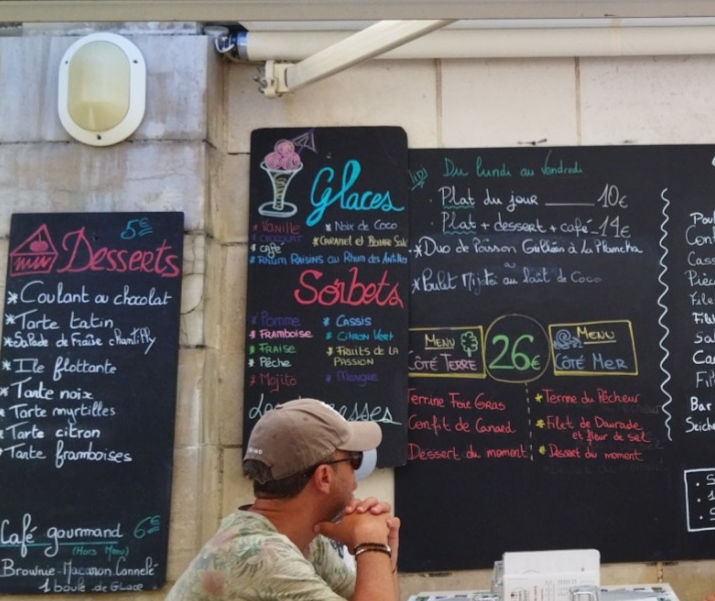 5€
Desserts
*Coulant au chocolat
*Tarte tatin
*Salade de Fraise chantilly
*Ile flottante
*Tarte noix
*Tarte myrtilles
*Tarte citron
*Tarte framboises
Café gourmand 6€
(Hors Menu)
Brownie Macaron Cannelé
1 boule de Glace
Glaces
*Vanille
*Noix de Coco
*café
*Caramel et Beurre Salé
*Rhum Raisins au Rhum des Antilles
Sorbets
*Pomme
*Framboise
*Fraise
*Pêche
*Mojito
*Cassis
*Citron Vert
*Fruits de la
Passion
*Mangue
Du lundi au Vendredi
Plat du jour 10€
Plat + dessert + café 14€
*Duo de Poisson Grillées à La Plancha
ou
*Poulet Mijoté au lait de Coco
Menu
Côté Terre
26€
Menu
Côté Mer
Terrine Foie Gras
Confit de Canard
Dessert du moment
*Terrine du Pêcheur
*Filet de Daurade
et fleur de sel
*Dessert du moment
Bar